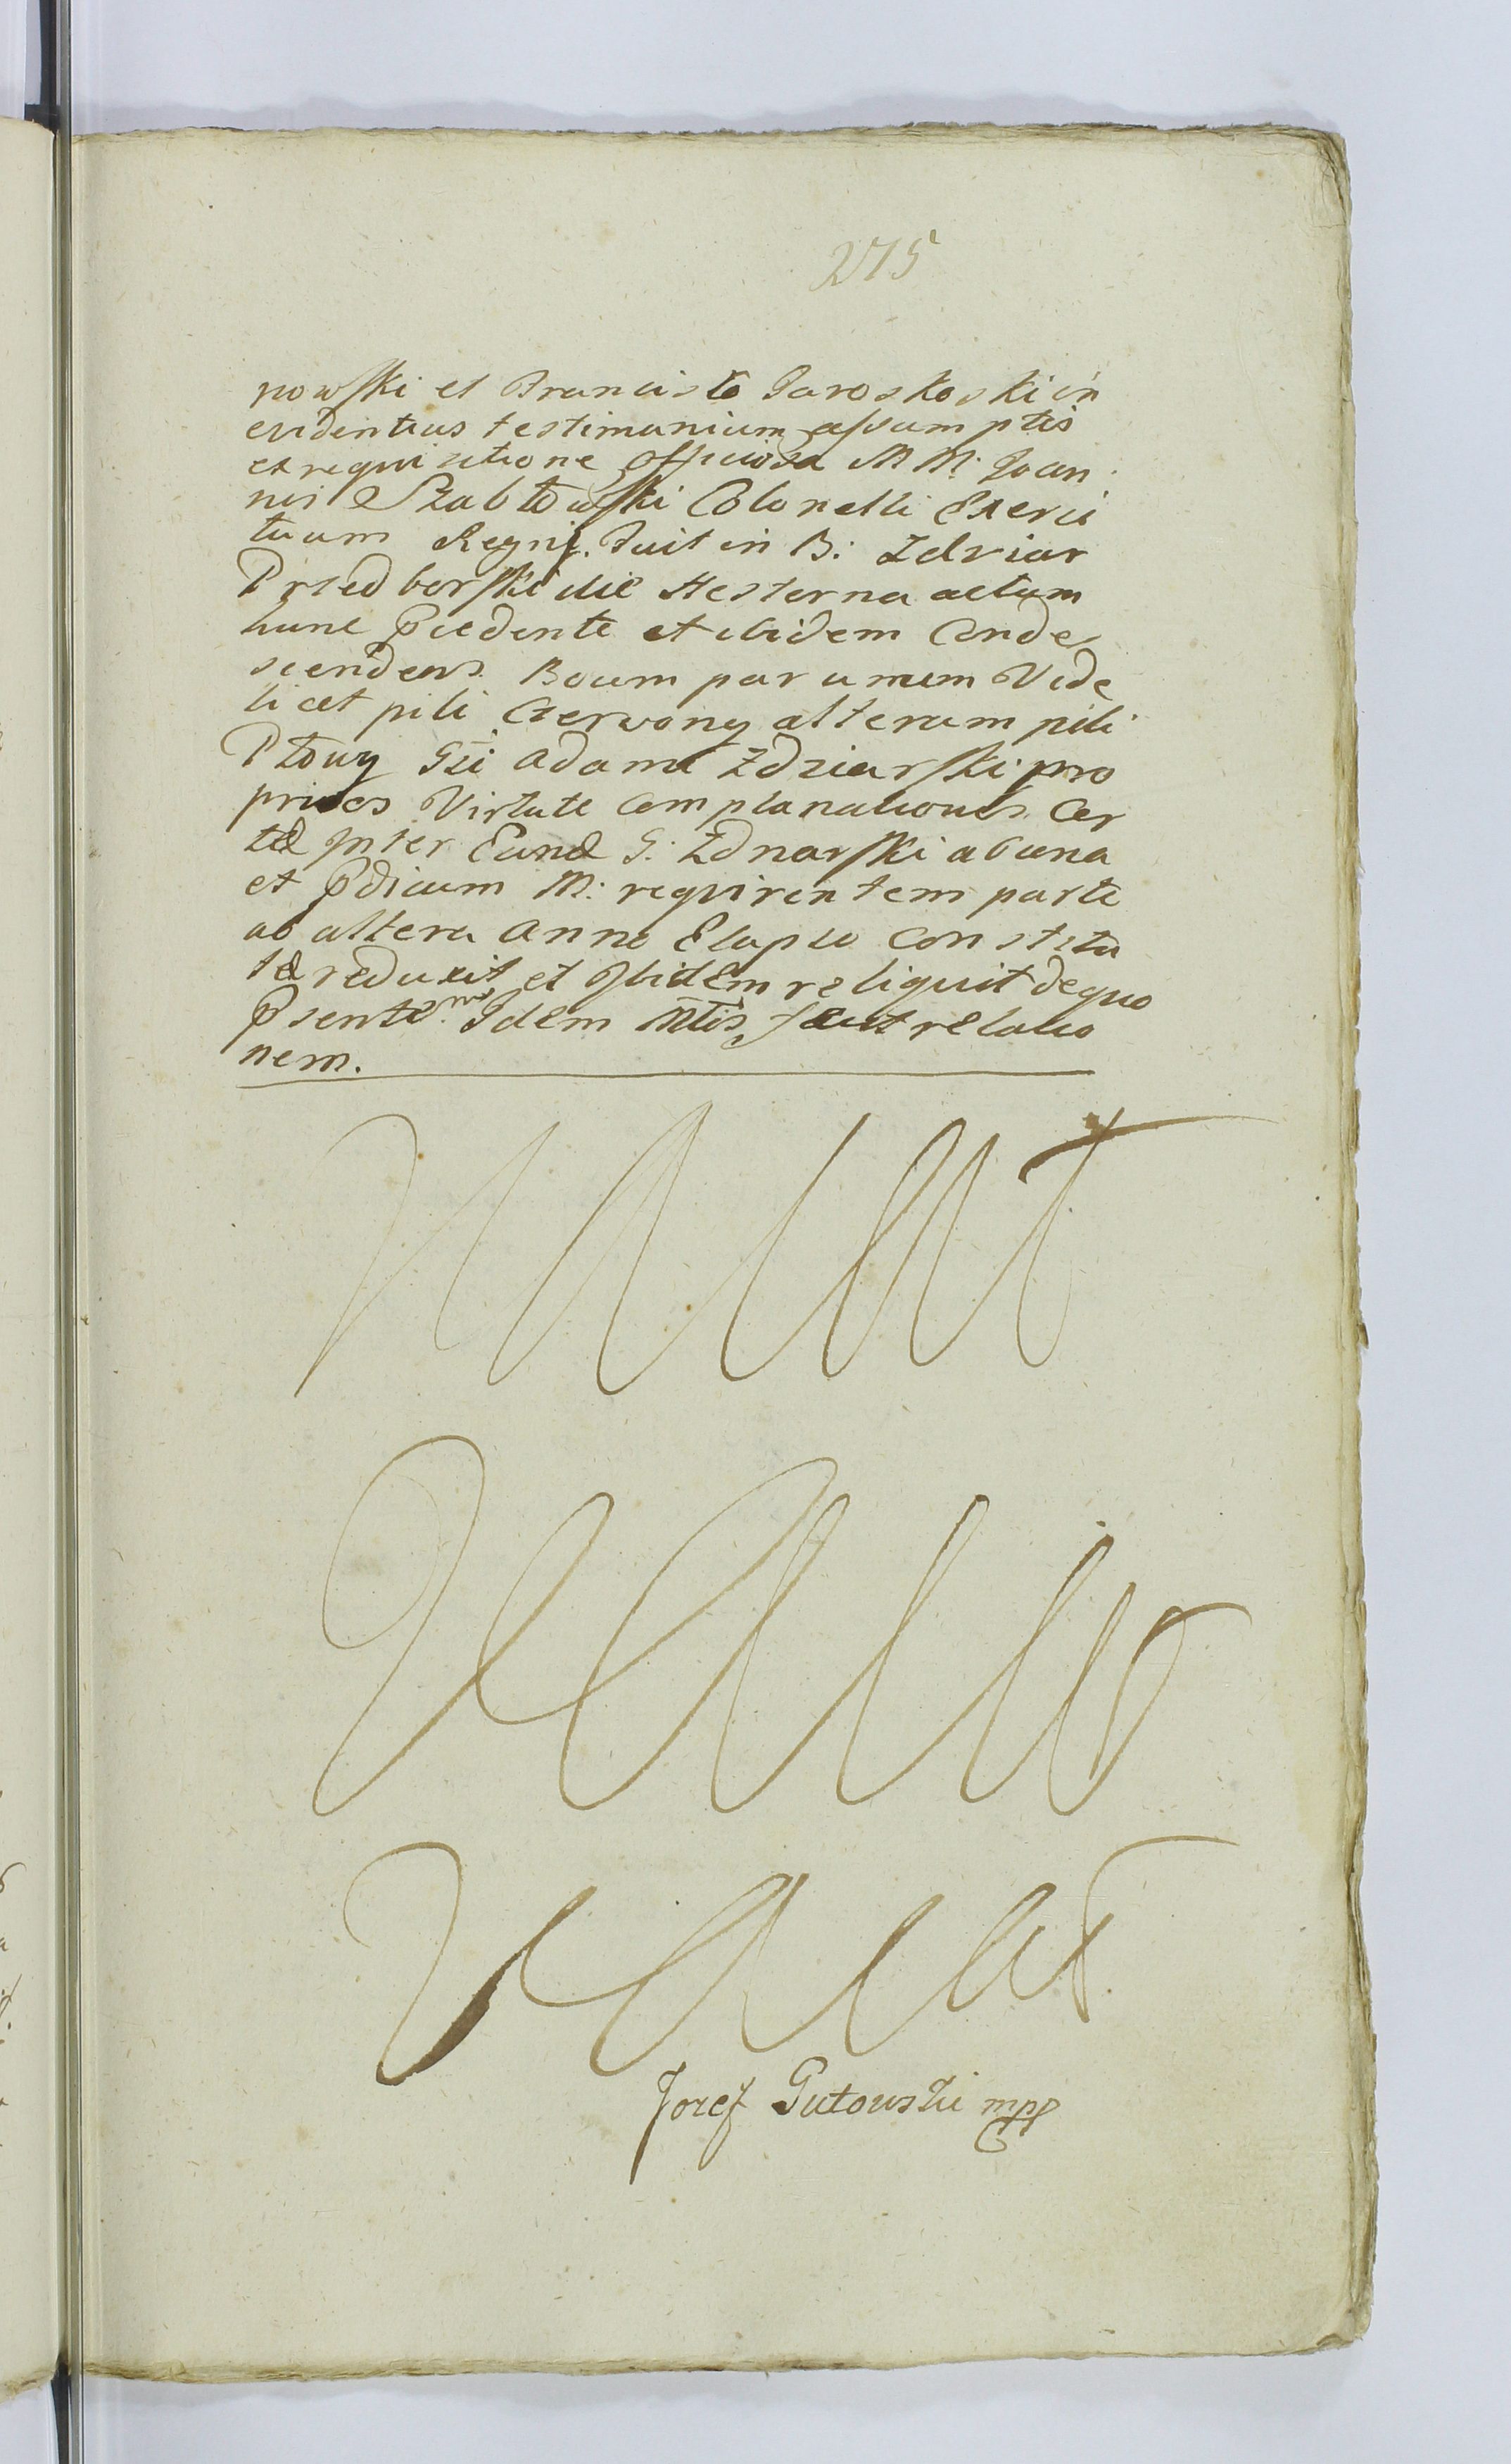 275
nowski et Francisco Jaroskoski in
evidentius testimonium assumptis
ex requisitione officiosa M M: Joan
nis Szabłowski Colonelli Exerci
tuum Regni. Fuit in B: Zdziar
Przedborski die Hesterna actum
hunc Pcedente et ibidem Conde
scendens Boum par unum Vide
licet pili Czerwony alterum pili
Płowy Gsi Adami Zdziarski pro
prios Virtute Complanationis Cer
tæ Inter Eund G: Zdziarski ab una
et Pdicum M: requirentem parte
ab altera Anno Elapso Constitu
tæ reduxit et Ibidem reliquit de quo
Psentem Idem Mtlis fecit relatio
nem.
Józef Gutowski mpp